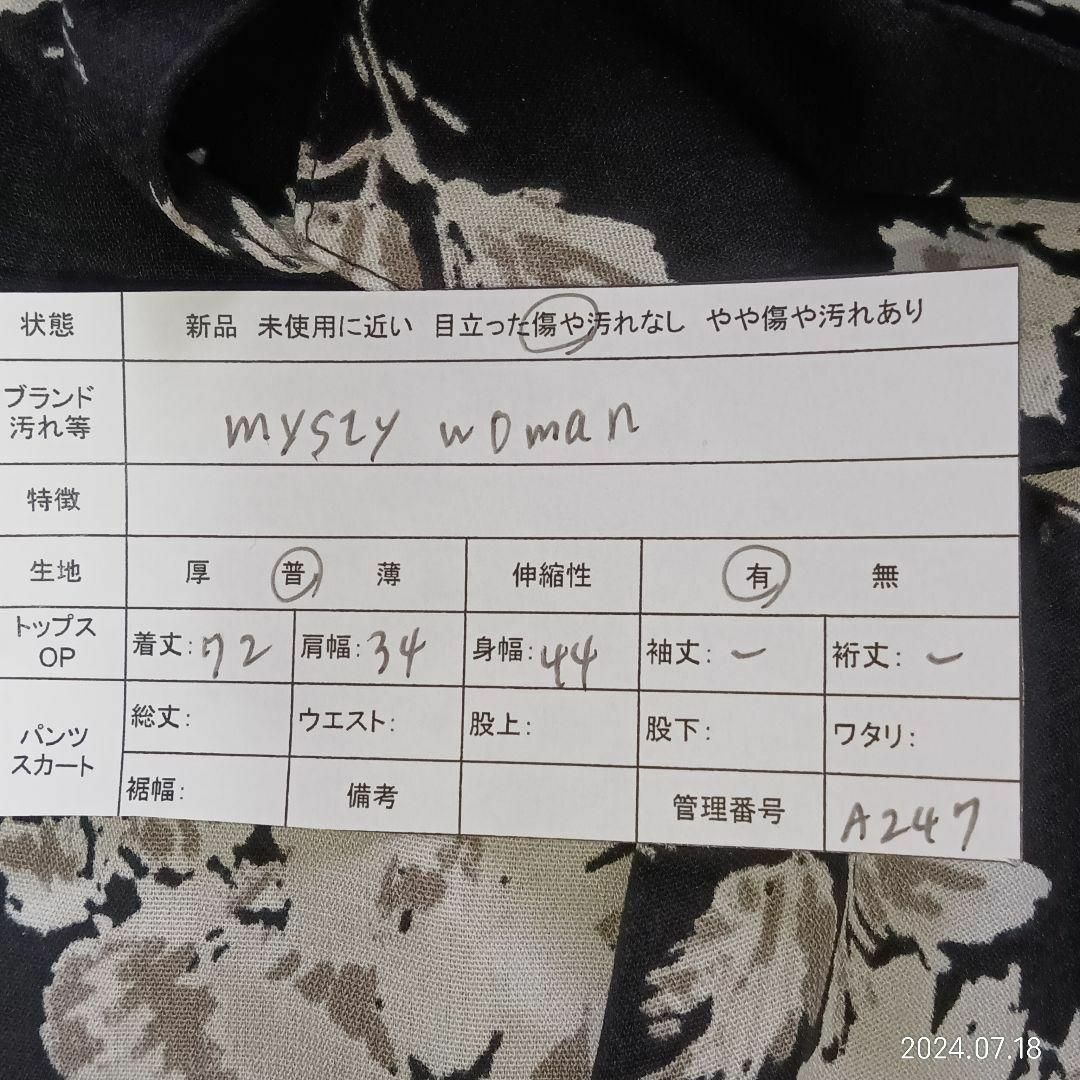 状態 新品 未使用に近い 目立った傷や汚れなし やや傷や汚れあり
ブランド
汚れ等
mysty woman
特徴
生地 厚 普 薄 伸縮性 有 無
トップス
OP
着丈:72 肩幅:34 身幅:44 袖丈:ー 裄丈:ー
パンツ
スカート
総丈: ウエスト: 股上: 股下: ワタリ:
裾幅: 備考 管理番号 A247
2024.07.18